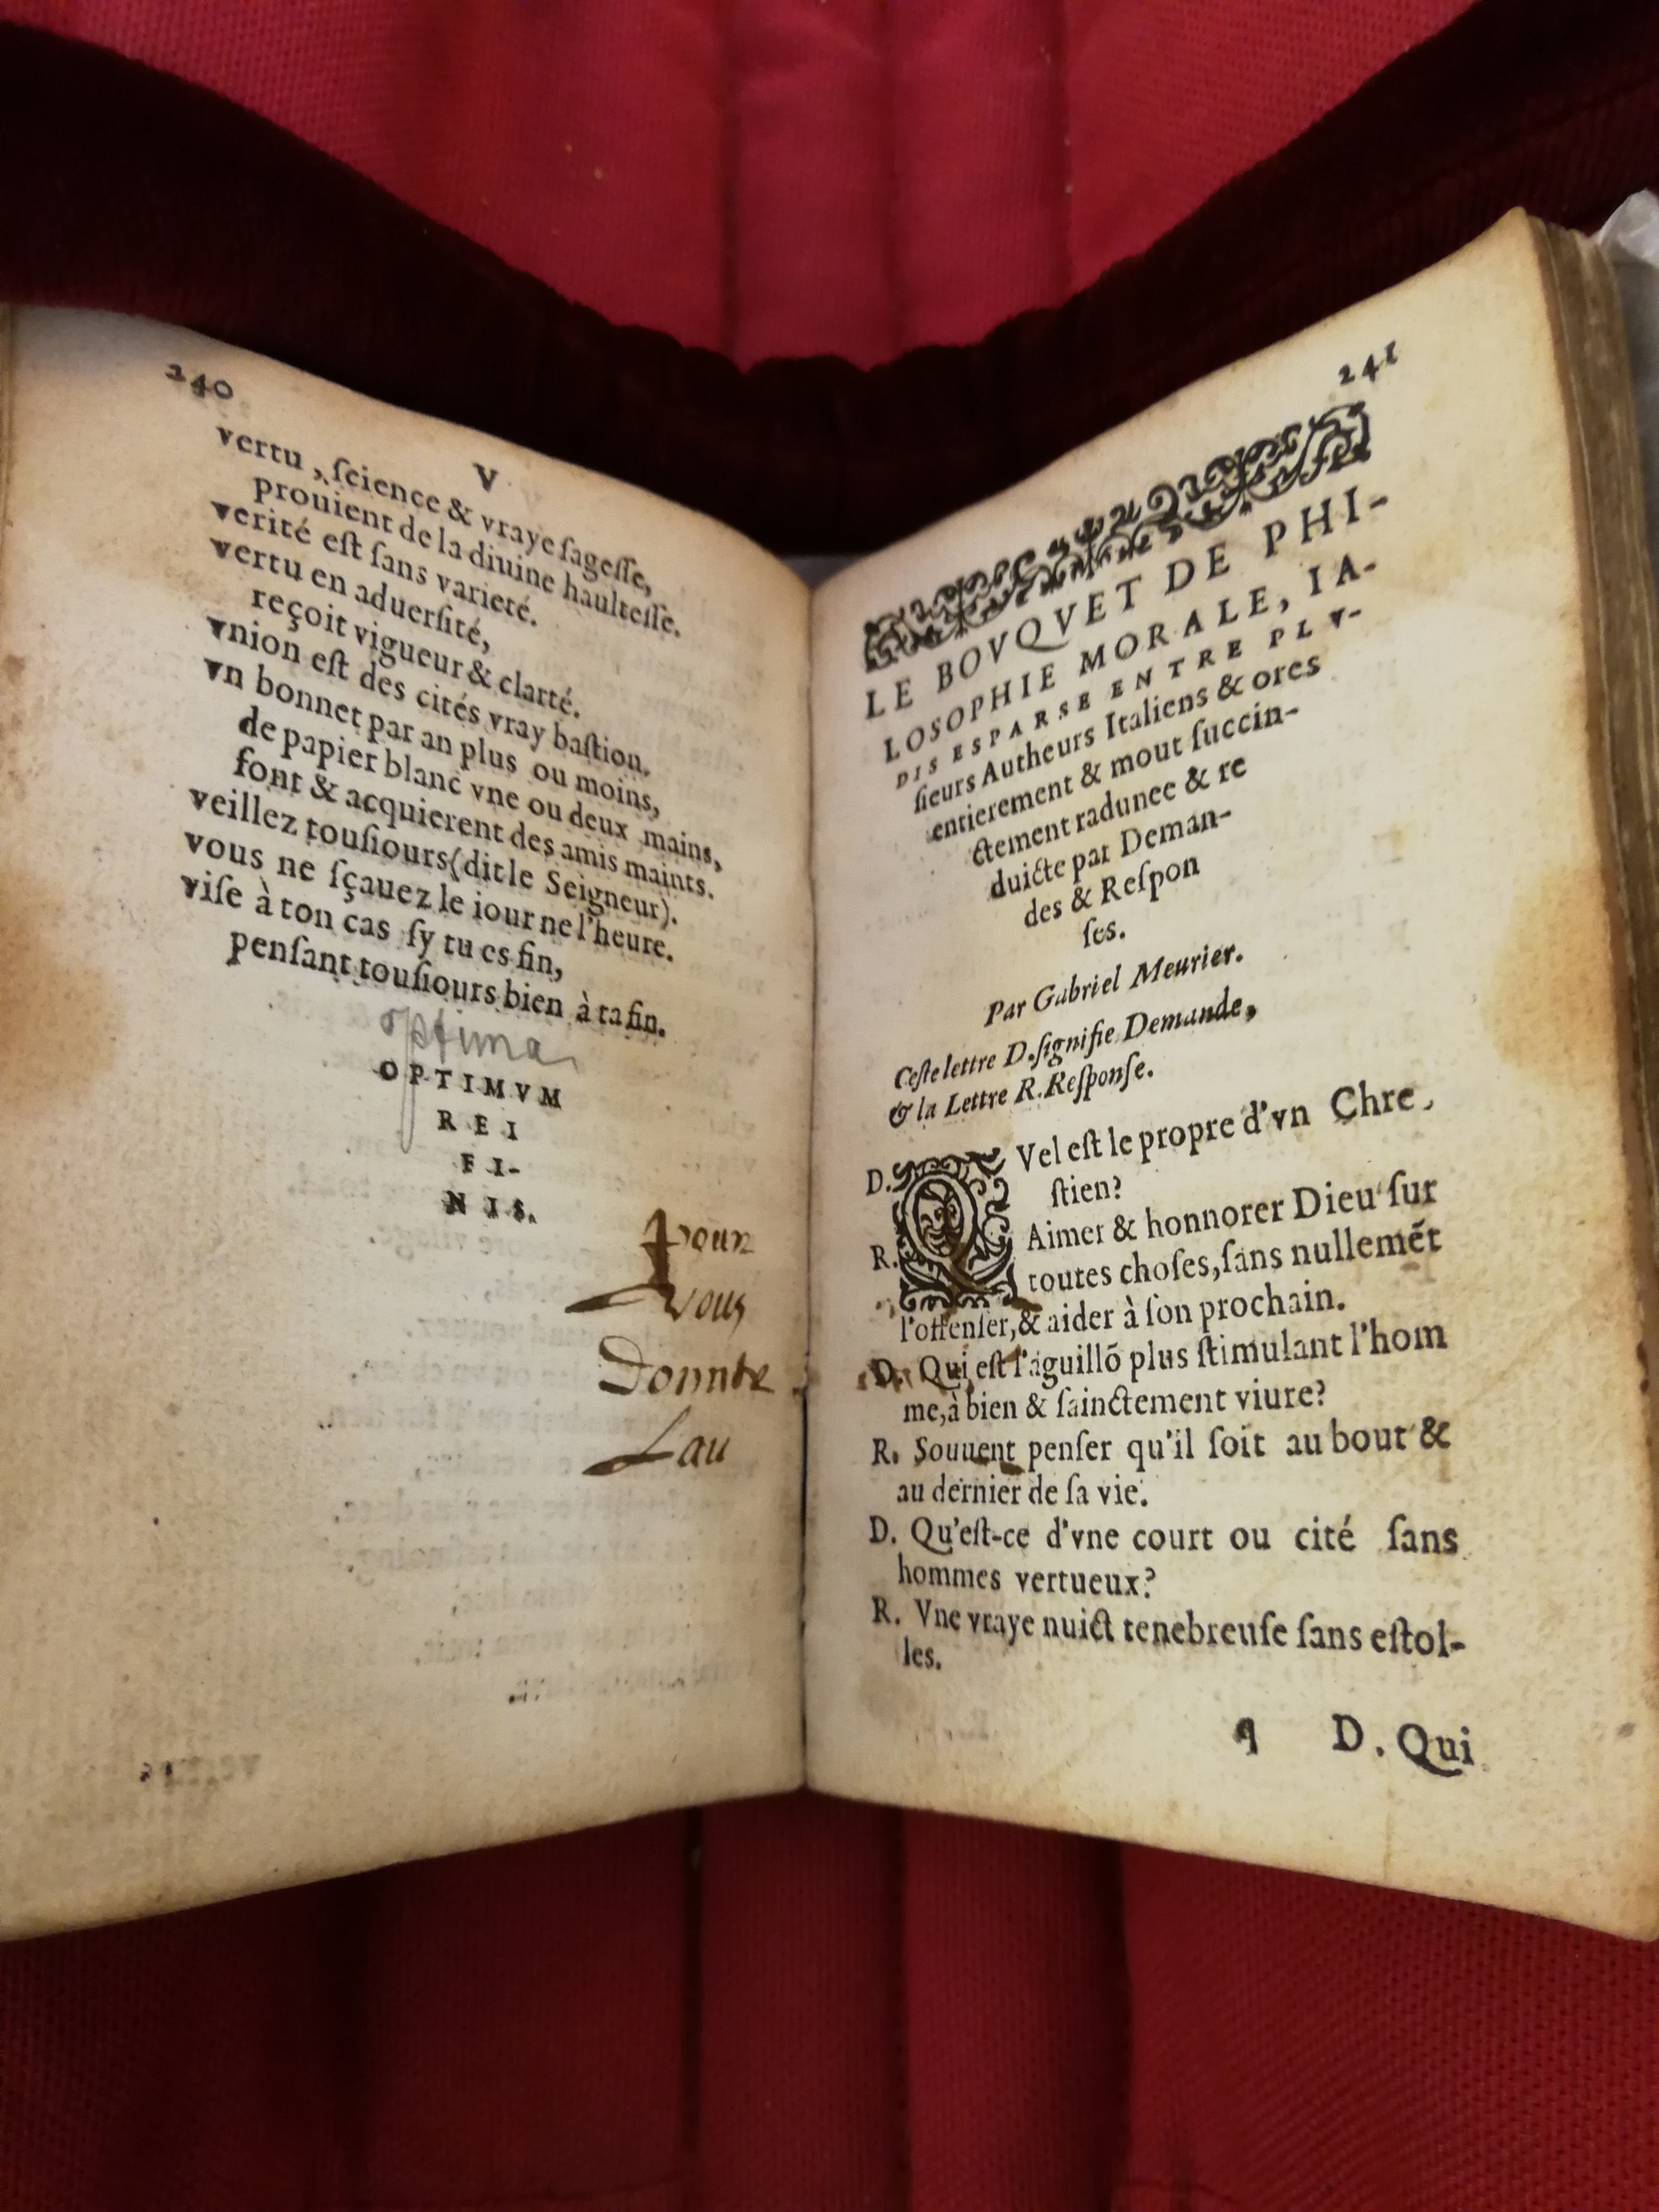 240
V
vertu, ſcience & vraye ſageſſe,
prouient de la diuine haulteſſe.
verité eſt ſans varieté.
vertu en aduerſité,
reçoit vigueur & clarté.
vnion eſt des cités vray baſtion.
vn bonnet par an plus ou moins,
de papier blanc vne ou deux mains,
font & acquierent des amis maints.
veillez touſiours(dit le Seigneur).
vous ne ſçauez le iour ne l'heure.
viſe à ton cas ſy tu es fin,
penſant touſiours bien à ta fin.
optima
OPTIMVM
REI
FI-
NIS.
pour
vous
Lau
241
LE BOVQVET DE PHI-
LOSOPHIE MORALE, IA-
DIS ESPARSE ENTRE PLV-
ſieurs Autheurs Italiens & ores
entierement & mout ſuccin-
ctement radunee & re
duicte par Deman-
des & Reſpon
ſes.
Par Gabriel Meurier.
Ceſte lettre D. ſignifie Demande,
& la Lettre R. Reſponſe.
D. QVel eſt le propre d'vn Chre-
ſtien?
R. Aimer & honnorer Dieu ſur
toutes choſes, ſans nullemẽt
l'offenſer, & aider à ſon prochain.
D. Qui eſt l'aguillõ plus ſtimulant l'hom
me, à bien & ſainctement viure?
R. Souuent penſer qu'il ſoit au bout &
au dernier de ſa vie.
D. Qu'eſt-ce d'vne court ou cité ſans
hommes vertueux?
R. Vne vraye nuict tenebreuſe ſans eſtol-
les.
q D. Qui